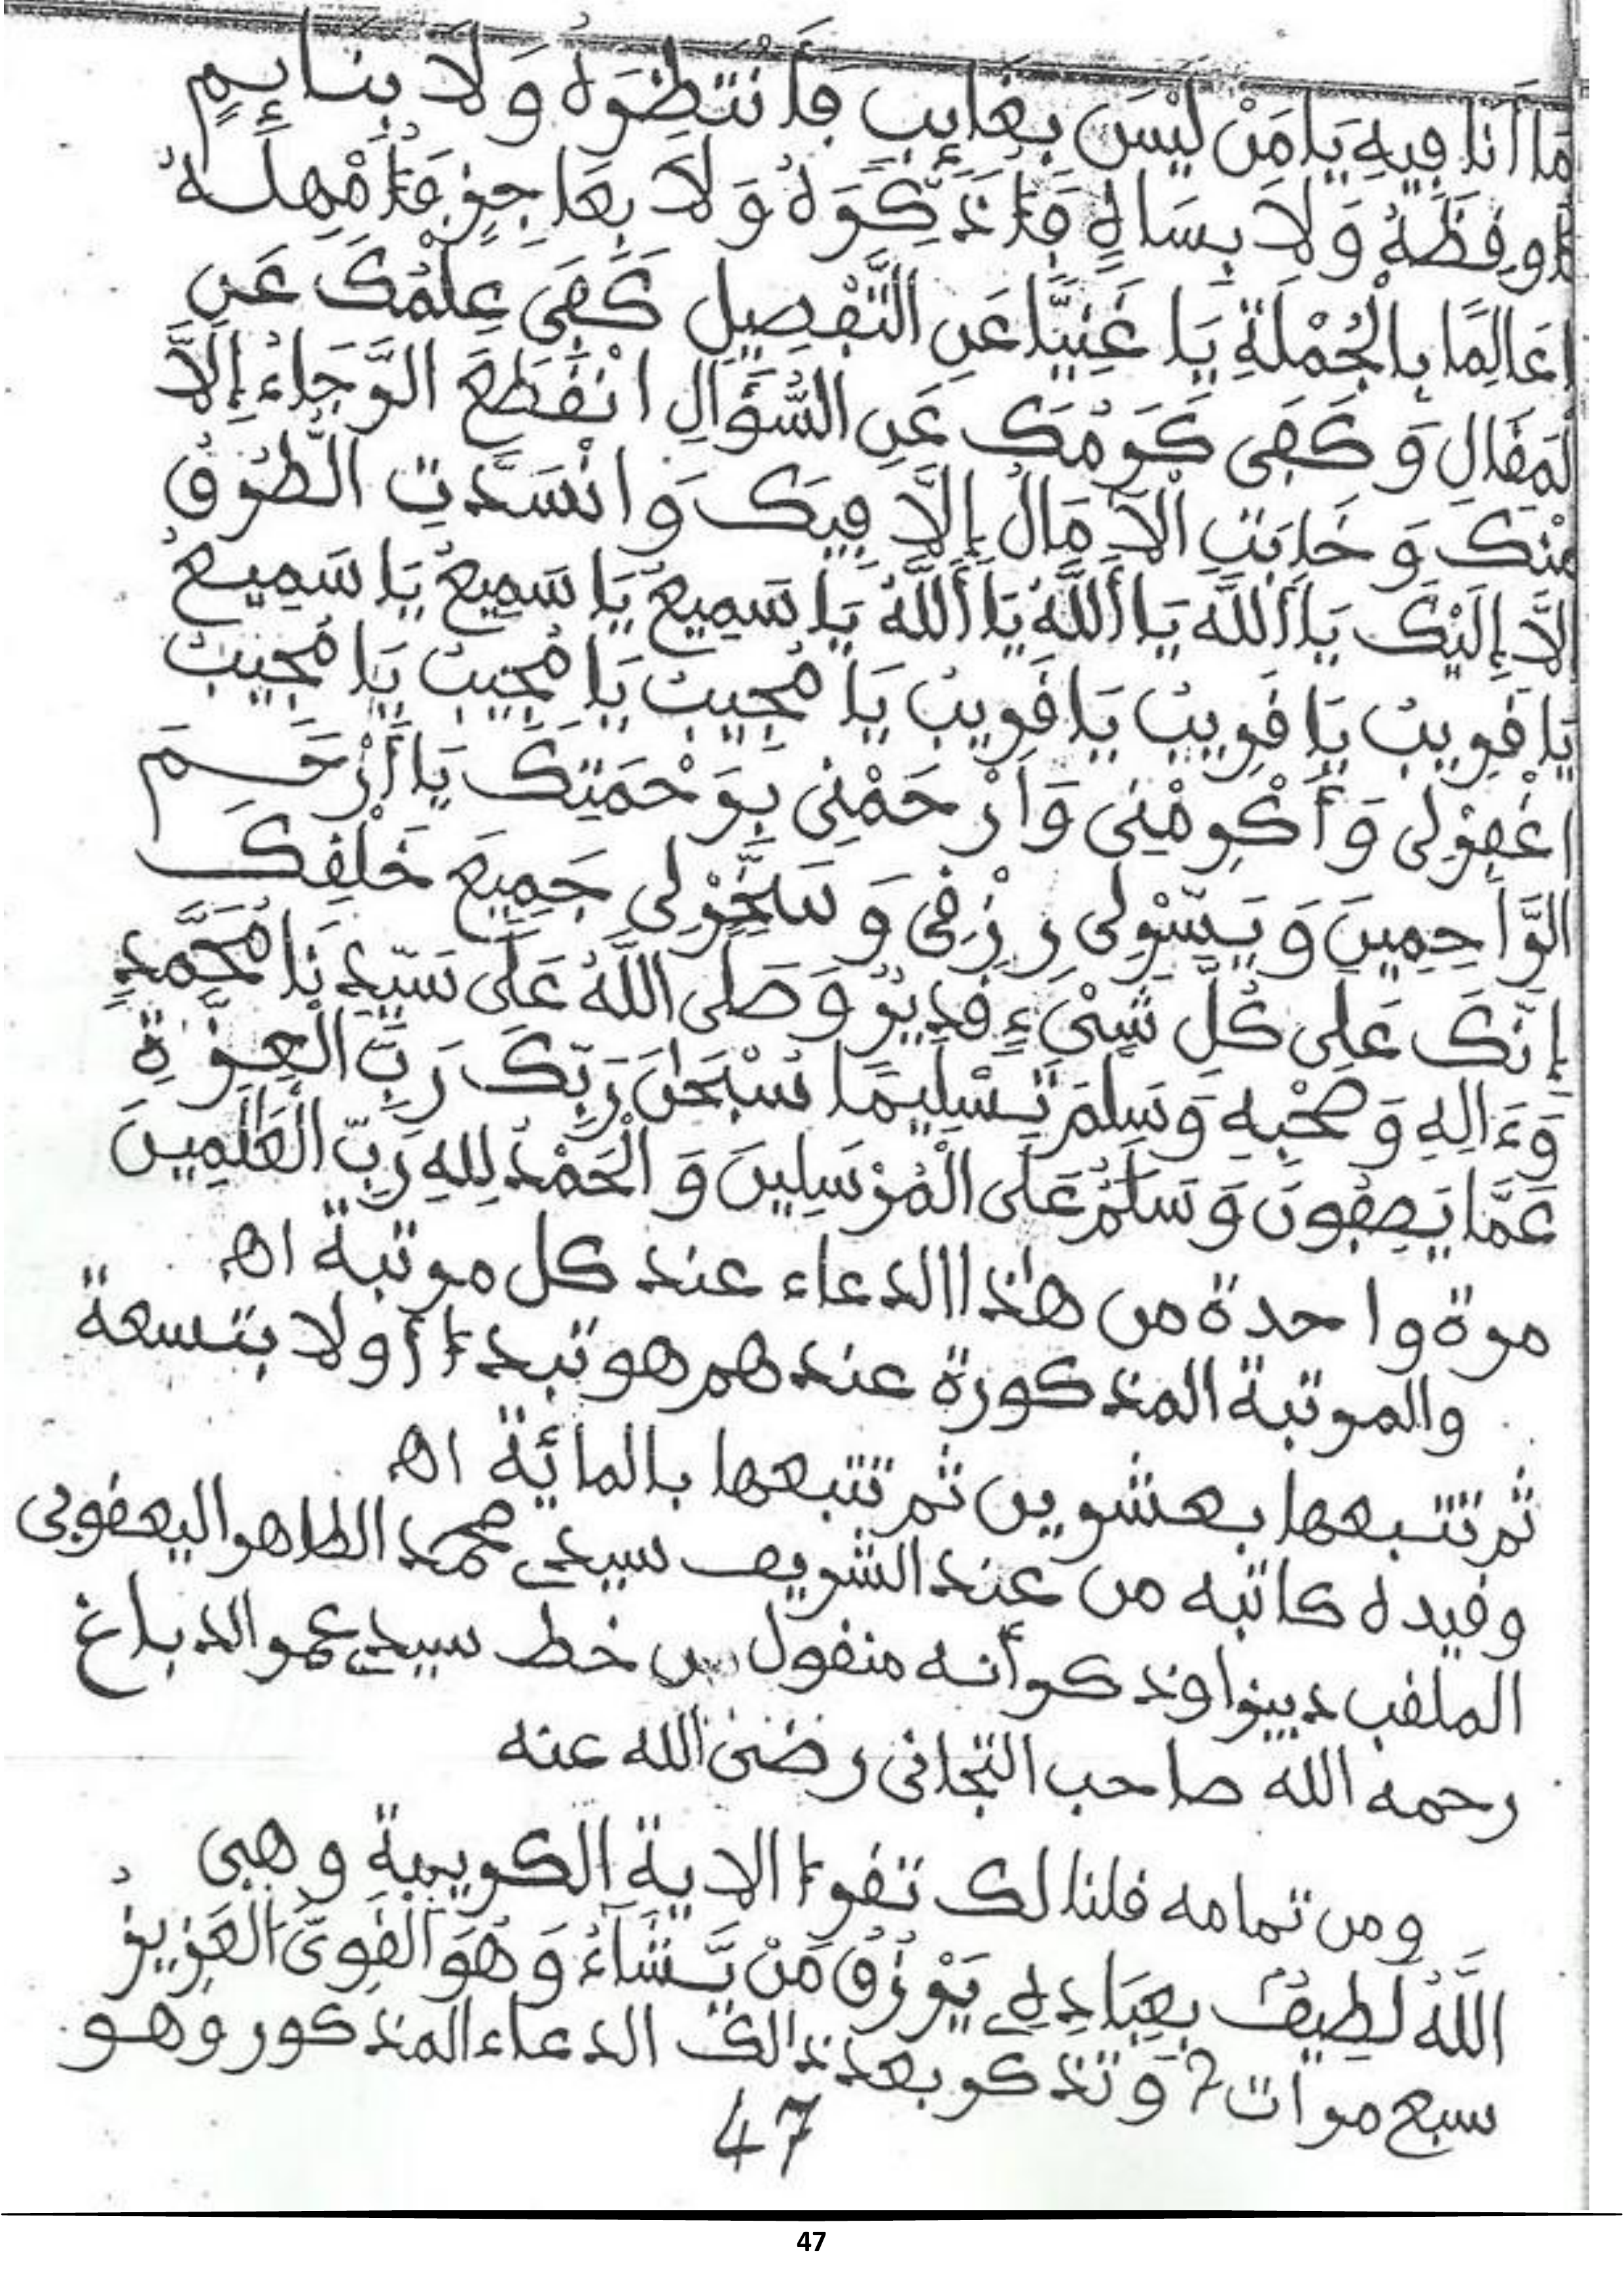 مَا أَنَا فِيهِ يَا مَنْ لَيْسَ بِغَائِبٍ فَأَنْتَظِرَهُ وَلَا بِنَائِمٍ
فَأُوقِظَهُ وَلَا بِسَاهٍ فَأُذَكِّرَهُ وَلَا بِعَاجِزٍ فَأُمْهِلَهُ
يَا عَالِمًا بِالْجُمْلَةِ يَا غَنِيًّا عَنِ التَّفْصِيلِ كَفَى عِلْمُكَ عَنِ
الْمَقَالِ وَكَفَى كَرَمُكَ عَنِ السُّؤَالِ انْقَطَعَ الرَّجَاءُ إِلَّا
مِنْكَ وَخَابَتِ الْآمَالُ إِلَّا فِيكَ وَانْسَدَّتِ الطُّرُقُ
إِلَّا إِلَيْكَ يَا أَللَّهُ يَا أَللَّهُ يَا أَللَّهُ يَا سَمِيعُ يَا سَمِيعُ يَا سَمِيعُ
يَا قَرِيبُ يَا قَرِيبُ يَا قَرِيبُ يَا مُجِيبُ يَا مُجِيبُ يَا مُجِيبُ
اغْفِرْ لِي وَأَكْرِمْنِي وَارْحَمْنِي بِرَحْمَتِكَ يَا أَرْحَمَ
الرَّاحِمِينَ وَيَسِّرْ لِي رِزْقِي وَسَخِّرْ لِي جَمِيعَ خَلْقِكَ
إِنَّكَ عَلَى كُلِّ شَيْءٍ قَدِيرٌ وَصَلَّى اللَّهُ عَلَى سَيِّدِنَا مُحَمَّدٍ
وَءَالِهِ وَصَحْبِهِ وَسَلَّمَ تَسْلِيمًا سُبْحَانَ رَبِّكَ رَبِّ الْعِزَّةِ
عَمَّا يَصِفُونَ وَسَلَامٌ عَلَى الْمُرْسَلِينَ وَالْحَمْدُ لِلهِ رَبِّ الْعَالَمِينَ
مرة واحدة من هاذا الدعاء عند كل مرتبة اه
والمرتبة المذكورة عندهم هو تبدأ أولا بتسعة
ثم تتبعها بعشرين ثم تتبعها بالمائة اه
وقيده كاتبه من عند الشريف سيدي محمد الطاهر اليعقوبي
الملقب ديبزا وذكر أنه منقول من خط سيدي عمر الدباغ
رحمه الله صاحب التجاني رضي الله عنه
ومن تمامه قلنا لك تقرأ الاية الكريمة وهي
اللَّهُ لَطِيفٌ بِعِبَادِهِ يَرْزُقُ مَنْ يَّشَاءُ وَهُوَ الْقَوِيُّ الْعَزِيزُ
سبع مرات 7 وتذكر بعد ذالك الدعاء المذكور وهو
47
47